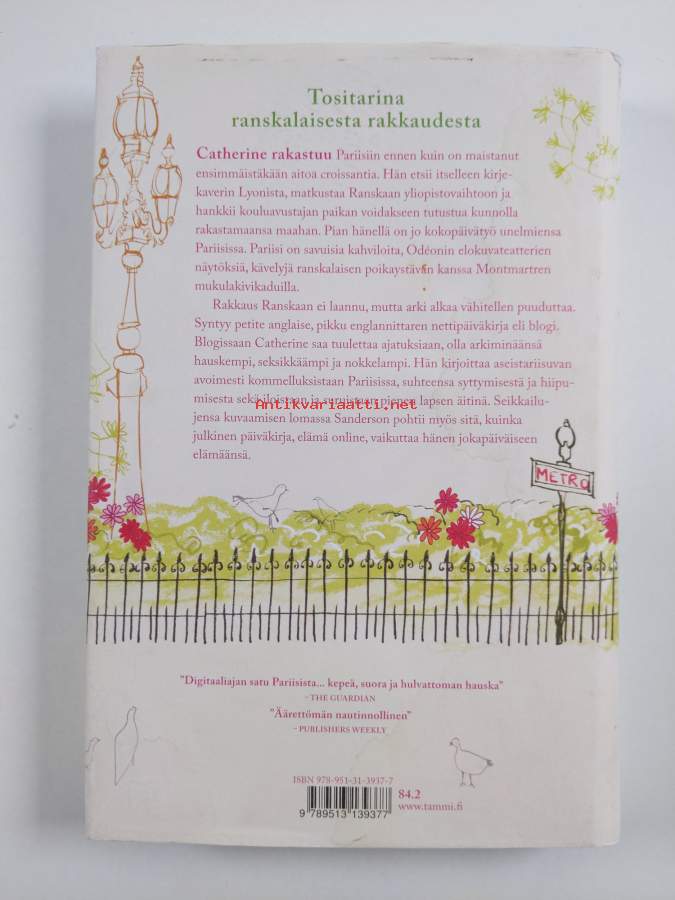 Tositarina
ranskalaisesta rakkaudesta
Catherine rakastuu Pariisiin ennen kuin on maistanut
ensimmäistäkään aitoa croissantia. Hän etsii itselleen kirje-
kaverin Lyonista, matkustaa Ranskaan yliopistovaihtoon ja
hankkii kouluavustajan paikan voidakseen tutustua kunnolla
rakastamaansa maahan. Pian hänellä on jo kokopäivätyö unelmiensa
Pariisissa. Pariisi on savuisia kahviloita, Odéonin elokuvateatterien
näytöksiä, kävelyjä ranskalaisen poikaystävän kanssa Montmartren
mukulakivikaduilla.
Rakkaus Ranskaan ei laannu, mutta arki alkaa vähitellen puuduttaa.
Syntyy petite anglaise, pikku englannittaren nettipäiväkirja eli blogi.
Blogissaan Catherine saa tuulettaa ajatuksiaan, olla arkiminäänsä
hauskempi, seksikkäämpi ja nokkelampi. Hän kirjoittaa aseistariisuvan
avoimesti kommelluksistaan Pariisissa, suhteensa syttymisestä ja hiipu-
misesta sekä iloistaan ja suruistaan pienen lapsen äitinä. Seikkailu-
Antikvariaatti.net
jensa kuvaamisen lomassa Sanderson pohtii myös sitä, kuinka
julkinen päiväkirja, elämä online, vaikuttaa hänen jokapäiväiseen
elämäänsä.
METRO
"Digitaaliajan satu Pariisista... kepeä, suora ja hulvattoman hauska"
– THE GUARDIAN
"Äärettömän nautinnollinen"
– PUBLISHERS WEEKLY
ISBN 978-951-31-3937-7
84.2
www.tammi.fi
9 789513 139377